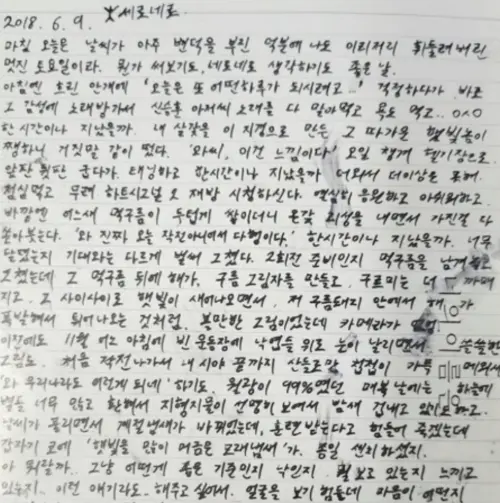 2018. 6. 9. *세로네로
마침 오늘은 날씨가 아주 변덕을 부린 덕분에 나도 이리저리 휘둘려버린
멋진 토요일이라. 뭔가 써보기도, 네로네로 생각하기도 좋은 날.
아침엔 흐린 안개에 '오늘은 또 어떤하루가 되시려고..' 걱정하다가 바로
그 감성에 노래방가서 신승훈 아저씨 노래를 다 말아먹고 욕도 먹고.. 0^0
한시간이나 지났을까. 내 살갗을 이 지경으로 만든 그 따가운 햇빛놈이
쨍하니 거짓말 같이 떴다. '와씨, 이건 느낌이다' 오일 챙겨
앞판 뒷판 굽다가. 태닝하고 한시간이나 지났을까 더워서 더이상은 못해.
점심먹고 무려 하트시그널 2 재방 시청하신다. 열심히 응원하고 아쉬워하고.
바깥엔 어느새 먹구름이 두텁게 깔이더니 온갖 괴성을 내면서 가진걸 다
쏟아붓는다. '와 진짜 오늘 작전아니여서 다행이다.' 한시간이나 지났을까. 너무
단했는지 기대와는 다르게 벌써 그쳤다. 2회전 준비인지 먹구름을 남겨놓고
그쳤는데 그 먹구름 뒤에 해가. 구름 그림자를 만들고. 구르미는 더 까매
지고. 그 사이사이로 햇빛이 새어나오면서. 저 구름돼지 안에서 해가
폭발해서 튀어나오는 것처럼. 볼만한 그림이었는데 카메라가 없
이전에도 11월 어느 아침에 빈 운동장에 낙엽들 위로 눈이 날리면서 쓸쓸한
그림도. 처음 작전나가서 내 시야 끝까지 산들로만 첩첩이 가득 메워서
'와 우리나라도 이렇게 되네' 하기도. 월광이 99%였던 매복날에는 하늘에
별들 너무 많고 환해서 지형지물이 선명히 보여서 밤새 겁내고 있기도하고.
날씨가 풀리면서 계절냄새가 바뀌었는데, 훈련받는다고 힘들어 죽겠는데
갑자기 코에 '햇빛을 많이 머금은 모래냄새'가. 종일 센치하셨지.
아 뭐랄까.. 그냥 어떻게 좋은 기준인지 난인지. 뭘 보고 있는지 느끼고
있는지.. 이런 얘기라도.. 해주고 싶어서. 얼굴을 보기 힘든데 마음이 어떤지